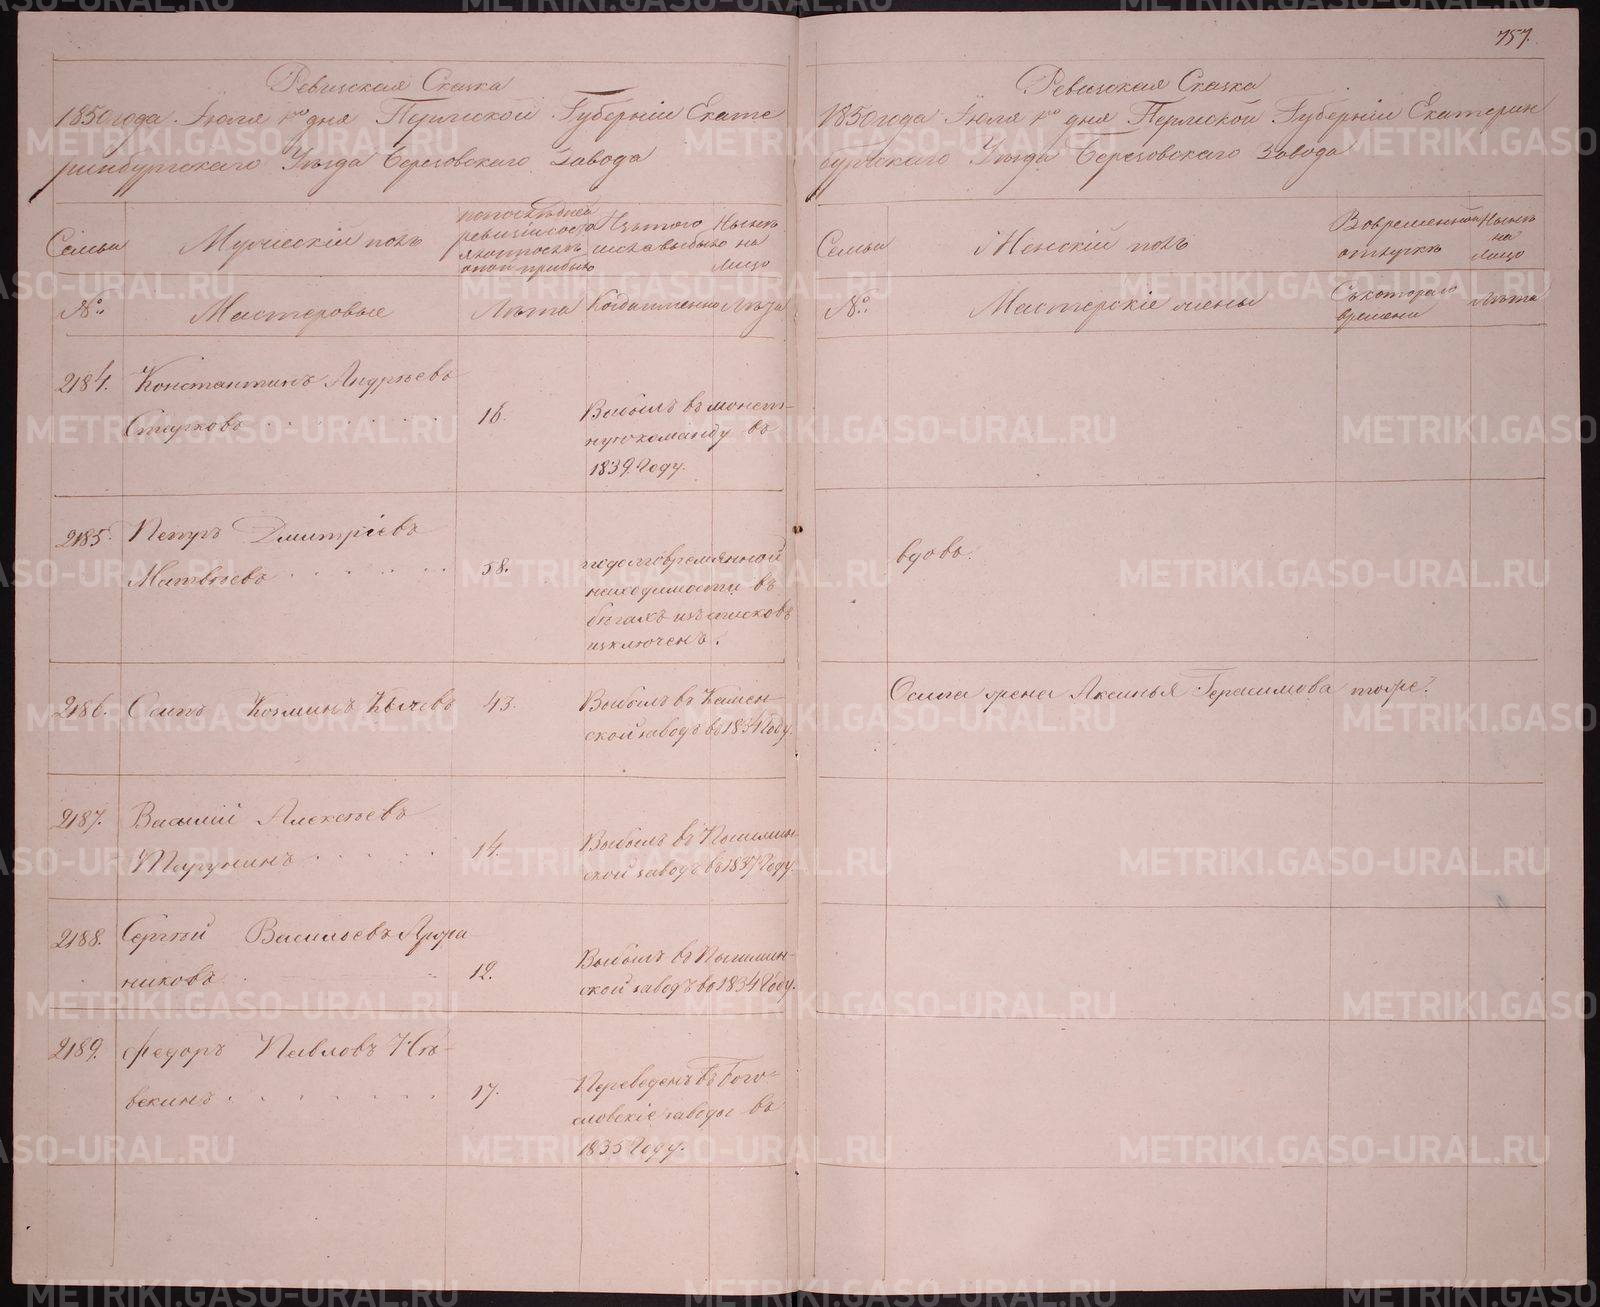 757.
Ревизская Сказка
1850 года Июля 1го дня Пермской Губернии Екате
ринбургскаго Уезда Березовскаго завода
Семьи
Мужеский полъ
по последней
ревизии состо
яло и после
оной прибыло
Изъ того
числа выбыло
Ныне
на
лицо
№:
Мастеровые
Лета
Когда именно
Лета
2184.
Константинъ Андреевъ
Старковъ
16.
Выбылъ въ монет-
ную команду въ
1839 Году.
2185.
Петръ Дмитріевъ
Матвеевъ
58.
по долговремянной
находимости въ
бегахъ изъ списковъ
изключенъ.
2186.
Осипъ Козминъ
43.
Выбылъ въ Камен-
ской заводъ въ 1834 Году.
2187.
Василий Алексеевъ
14.
Выбылъ въ Пышмин-
ской заводъ въ 1837 Году.
2188.
Сергей Васильевъ
никовъ
12.
Выбылъ въ Пышмин-
ской заводъ въ 1834 Году.
2189.
Федоръ Павловъ
17.
Переведенъ въ Бого-
словскіе заводы въ
1835 Году.
Ревизская Сказка
1850 года Июля 1го дня Пермской Губерніи Екатерин
бургскаго Уезда Березовскаго завода
Семьи
Женскій полъ
Во временной
отлучке
Ныне
на
лицо
№:
Мастерскіе жены
Съ котораго
времени
Лета
вдовъ.
Осипа жена Аксинья Герасимова тоже.
METRIKI.GASO-URAL.RU